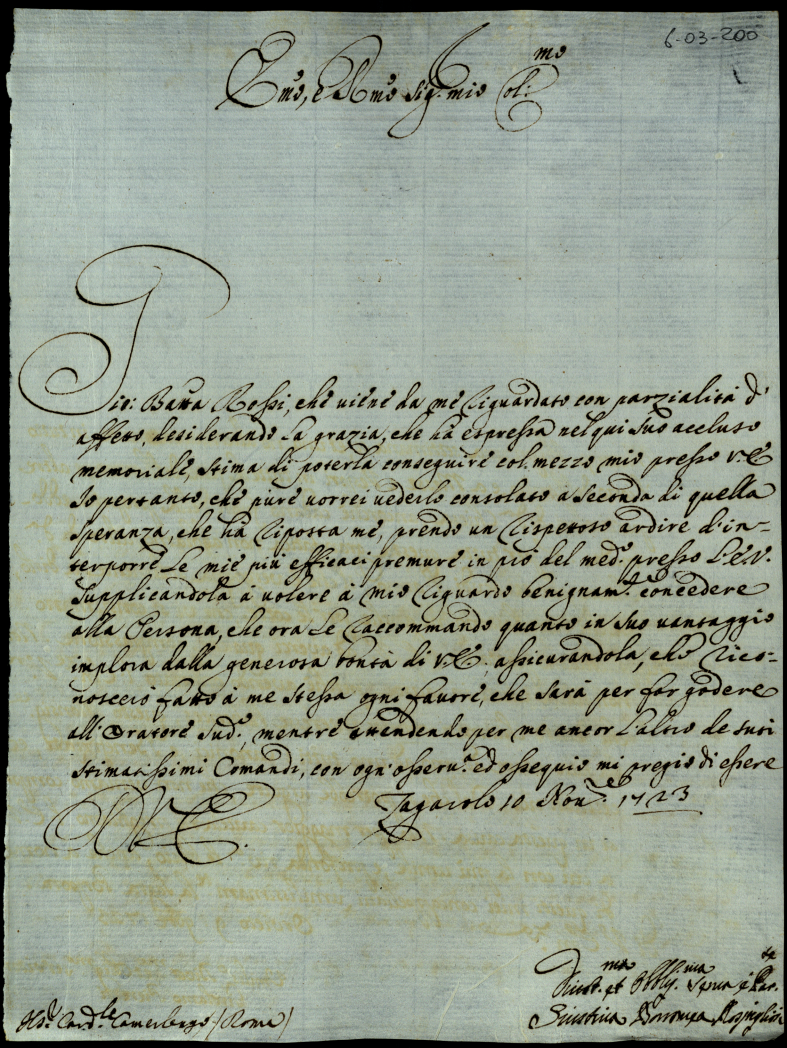 6-03-200
1
Em̃o, e Rm̃o Sig.r mio Col:mo
Gio: Batta Rossi, che viene da me riguardato con parzialità d'
affetto, desiderando la grazia, che hà espressa nel qui suo accluso
memoriale, stima di poterla conseguire col mezzo mio presso V.E.
Io pertanto, che pure vorrei vederlo consolato à seconda di quella
speranza, che hà riposta in me, prendo un rispettoso ardire d'in-
terporre le mie più efficaci premure in prò del med.o presso l'E.V.
supplicandola à volere à mio riguardo benignam.te concedere
alla Persona, che ora le raccommando quanto in suo vantaggio
implora dalla generosa bontà di V.E., assicurandola, che rico-
noscerò fatto à me stessa ogni favore, che sarà per far godere
all'Oratore Sud.o, mentre attendendo per me ancor l'altro de suoi
stimatissimi Comandi, con ogn'osserv.a ed ossequio mi pregio di essere
D V.E. Zagarolo 10 Nov.re 1723
Divot.ma et Obblig.ma Serva e Par.te
Giustina Borromea Rospigliosi
Card.le Camerlengo (Roma)